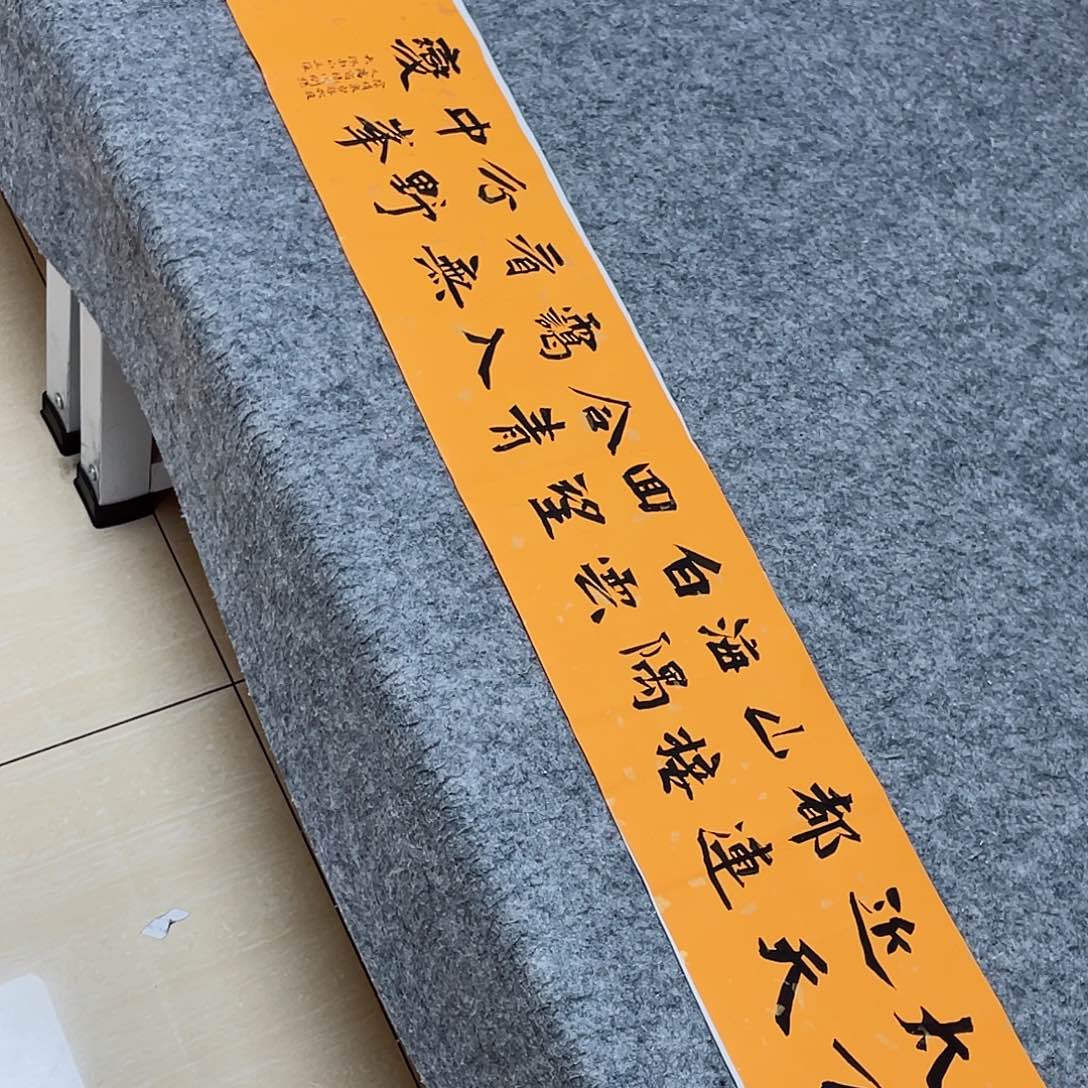 太乙
近天
都連
山接
海隅
白雲
回望
合青
靄入
看無
分野
中峯
變